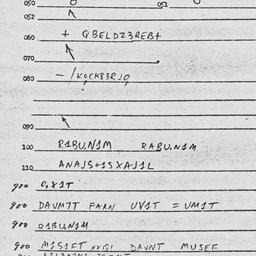 050 051
052
060 + QBELDZ3REB+
070
080 - /KQCK83RJQ
090
100 R1BU.N1M RABU.N1M
110 ANAJS+1SXAJ1L
900 0.X1T
900 DAVM7T FARN UV1T = UM1T
900 01BU.N1M
900 M1S1FT DAVNT MUSEF